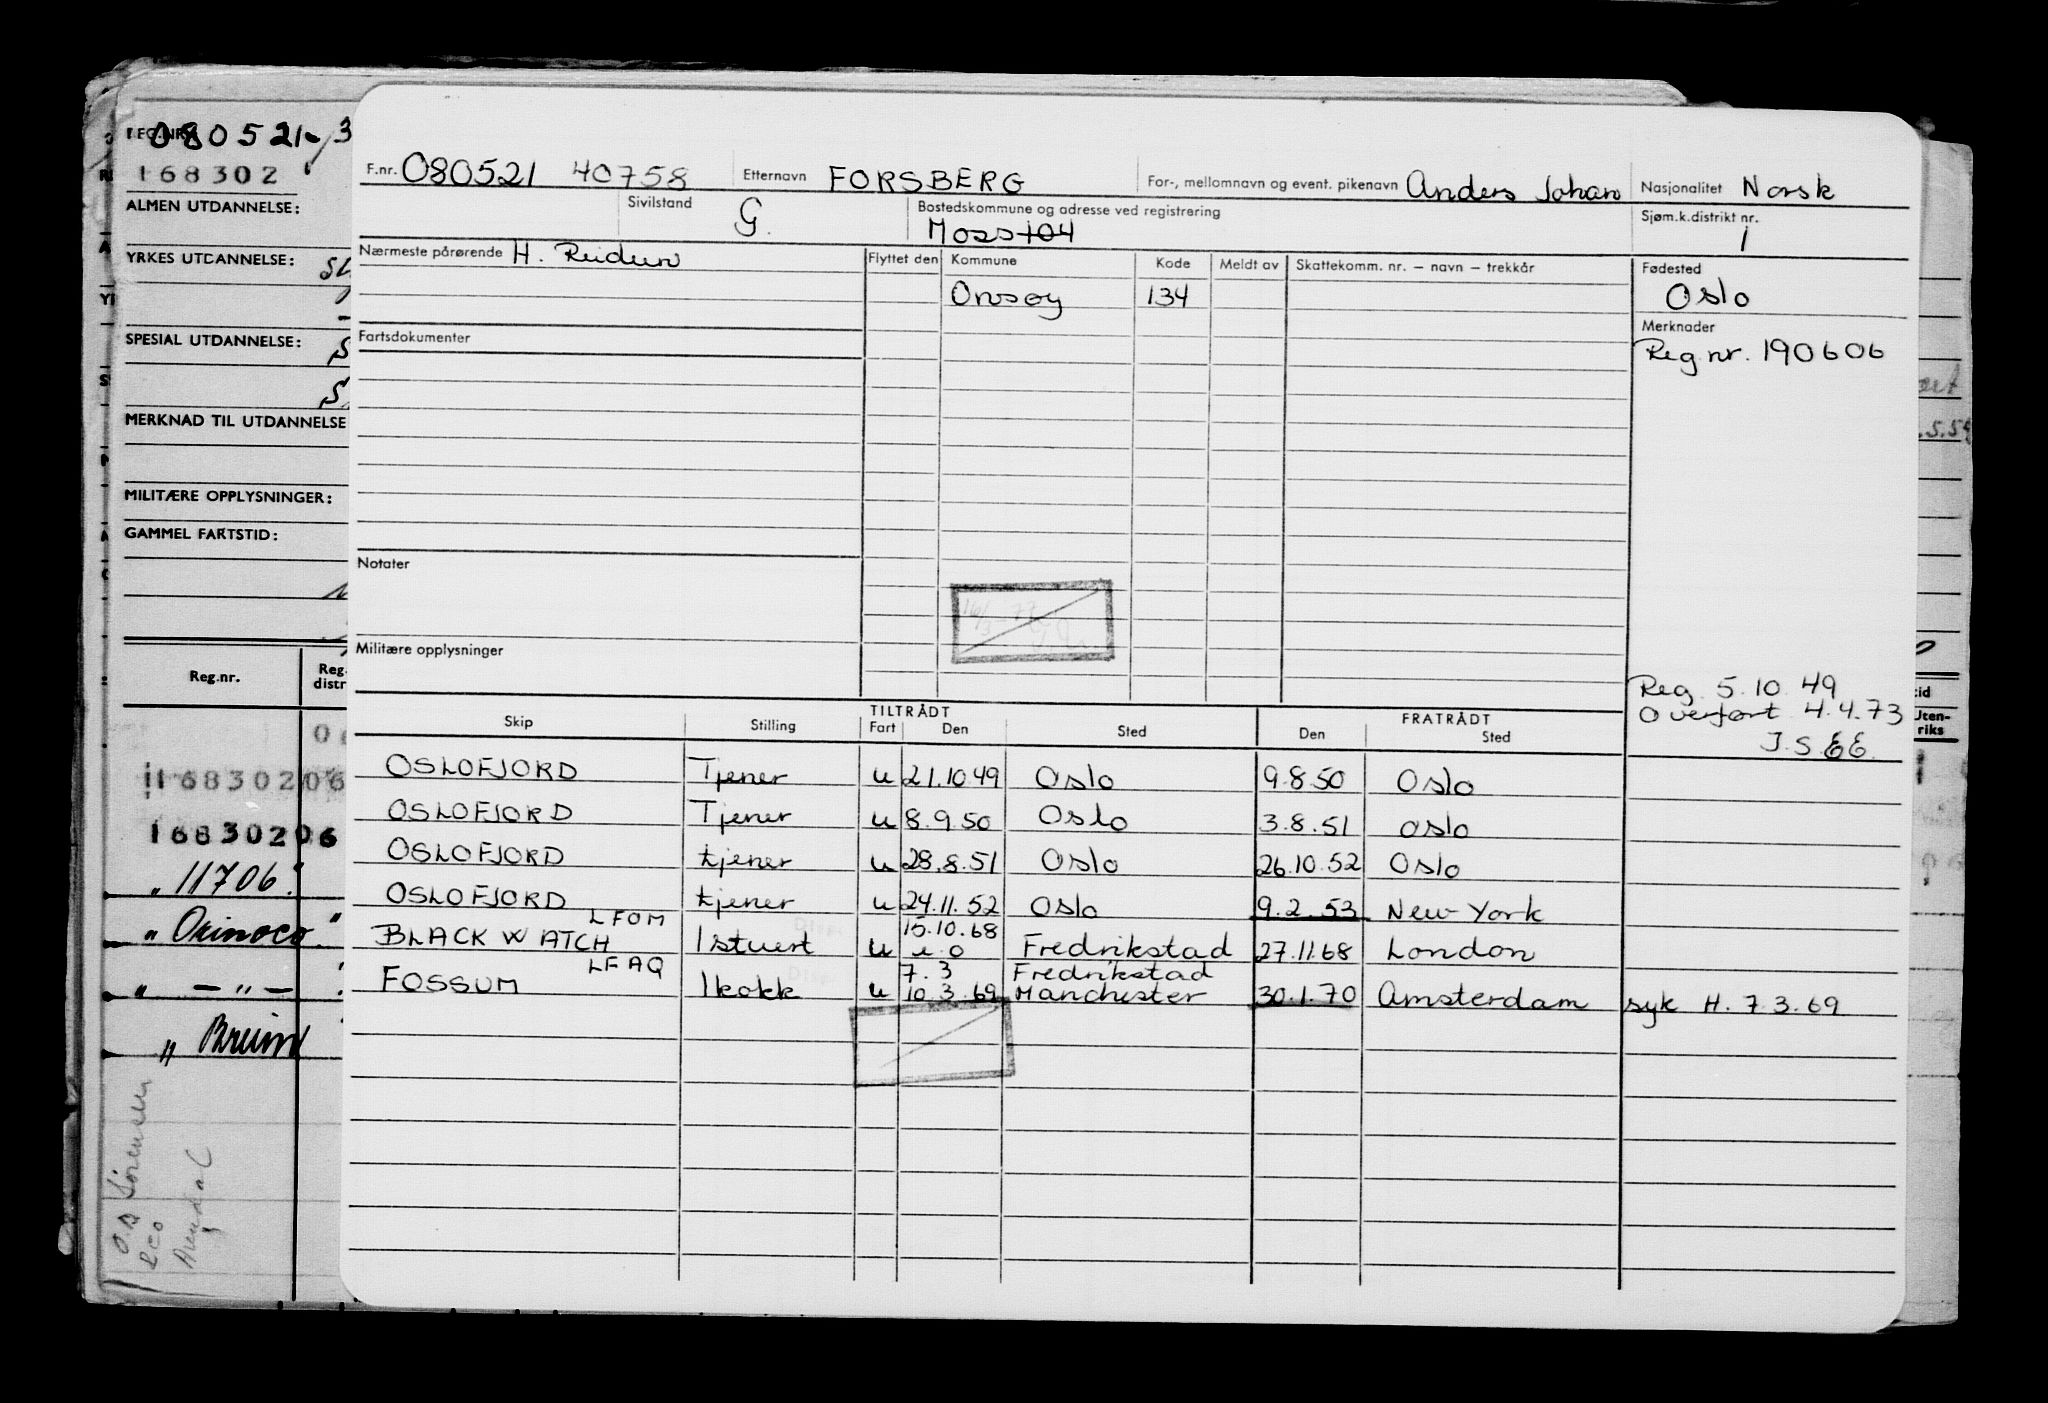 REG.NR. 080521-3
168302
ALMEN UTDANNELSE:
YRKES UTDANNELSE:
SPESIAL UTDANNELSE:
MERKNAD TIL UTDANNELSE
MILITÆRE OPPLYSNINGER:
GAMMEL FARTSTID:
Reg.nr. Reg. distr
16830206
16830206
" 11706 "
" Orinoco "
" — " —
" Breim
O.B Sørensen
&co
Arendal
F.nr. 080521 40758 Etternavn FORSBERG For-, mellomnavn og event. pikenavn Anders Johan Nasjonalitet Norsk
Sivilstand G. Bostedskommune og adresse ved registrering Moss 104 Sjøm.k.distrikt nr. 1
Nærmeste pårørende H. Reidun Flyttet den Kommune Kode Meldt av Skattekomm. nr. – navn – trekkår Fødested
Onsøy 134 Oslo
Fartsdokumenter Merknader
Reg nr. 190606
Notater
16/3-77
Militære opplysninger
Reg. 5.10.49
Overført 4.4.73
TILTRÅDT FRATRÅDT
Skip Stilling Fart Den Sted Den Sted
OSLOFJORD Tjener u 21.10.49 Oslo 9.8.50 Oslo
OSLOFJORD Tjener u 8.9.50 Oslo 3.8.51 Oslo
OSLOFJORD tjener u 28.8.51 Oslo 26.10.52 Oslo
OSLOFJORD tjener u 24.11.52 Oslo 9.2.53 New York
LFOM 15.10.68
BLACK WATCH 1stuert u u.o Fredrikstad 27.11.68 London
LFAQ 7.3 Fredrikstad
FOSSUM 1kokk u 10.3.69 Manchester 30.1.70 Amsterdam syk H. 7.3.69
Uten-
riks